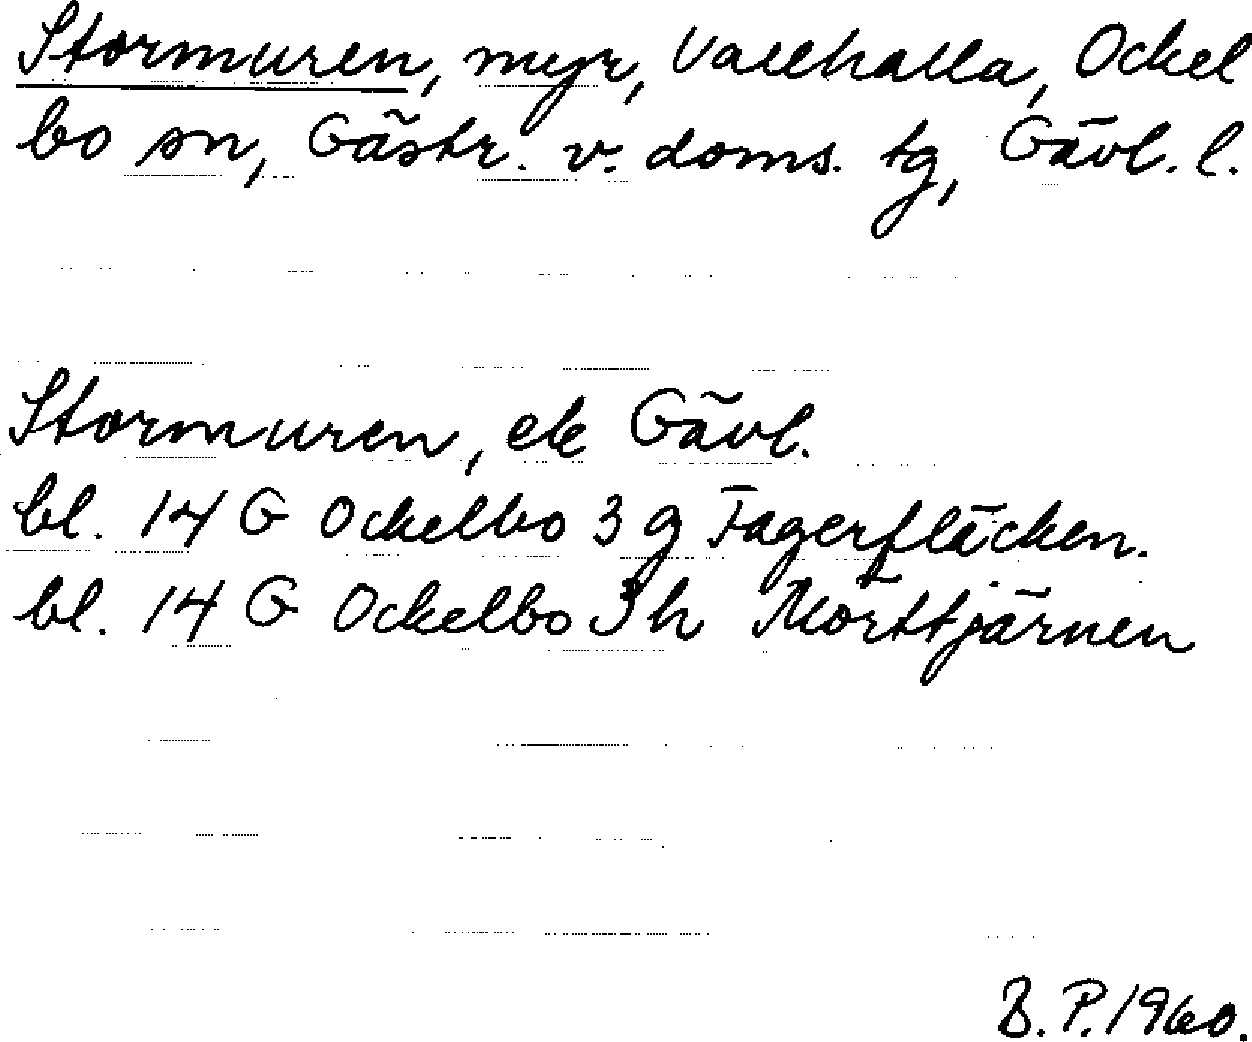 Stormuren, myr, Vallhalla, Ockel
bo sn, Gästr. v. doms. tg, Gävl. l.
Stormuren, ek Gävl.
bl. 14 G Ockelbo 3 g Fagerfläcken.
bl. 14 G Ockelbo 3 h Mörttjärnen
B. P. 1960.